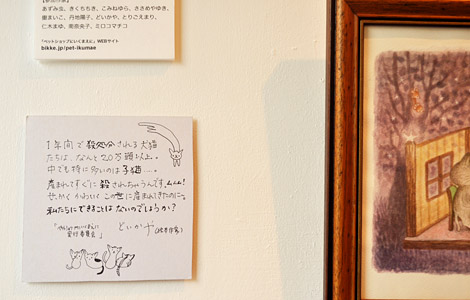 【参加作家】
あずみ虫、きくちちき、こみねゆら、ささめやゆき、
園まいこ、丹地陽子、どいかや、とりごえまり、
仁木まゆ、南奈央子、ミロコマチコ
「ペットショップにいくまえに」WEBサイト
bikke.jp/pet-ikumae
1年間で殺処分される犬猫
たちは、なんと20万頭以上。
中でも特に多いのは子猫…。
産まれてすぐに殺されちゃうんです。
せっかくかわいくこの世に産まれてきたのに。
私たちにできることはないのでしょうか?
「ペットショップにいくまえに
実行委員会」
どいかや(絵本作家)